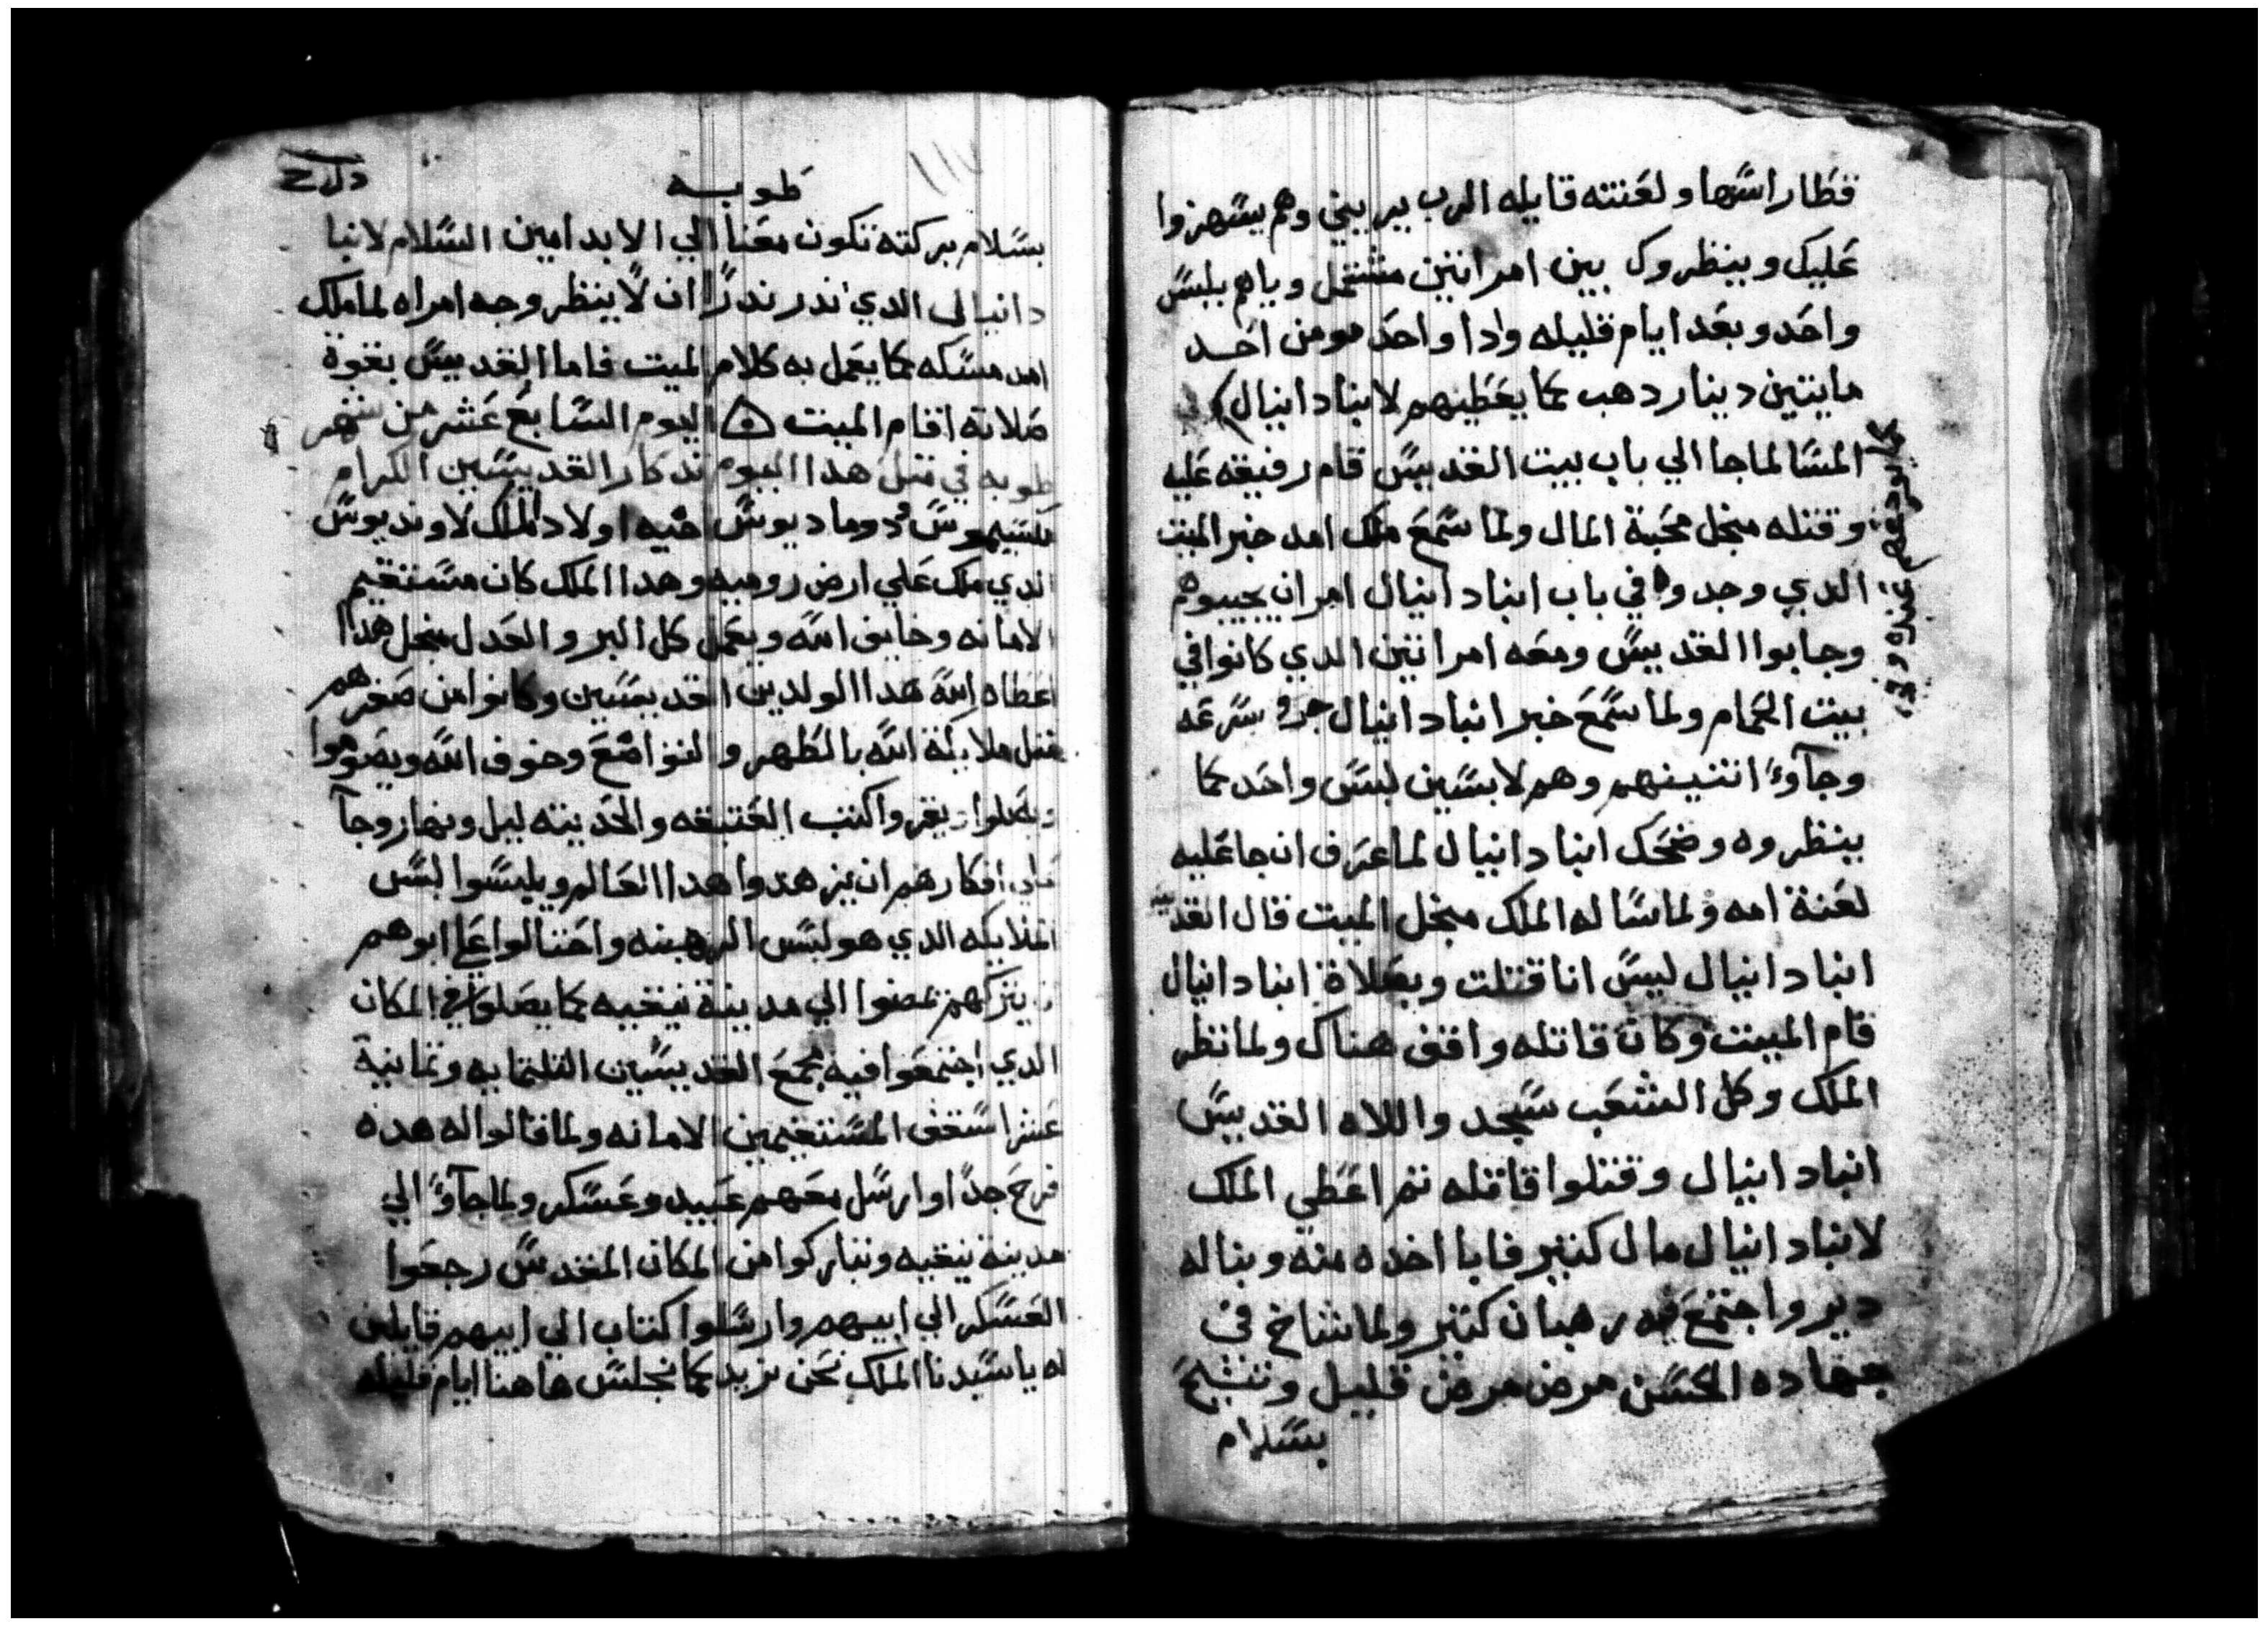 فطار راسها ولعنته قايله الرب يريني وهم يستهزوا
عليك وينظروك بين امراتين مشتمل وياهم بلبس
واحد وبعد ايام قليله وادا واحد مومن اخد
مايتين دينار دهب كما يعطيهم لانبا دانيال
المسا لما جا الي باب بيت القديس قام رفيقه عليه
وقتله منجل محبة المال ولما سمع ملك امد خبر الميت
الدي وجدوه في باب انبا دانيال امر ان يجيبوهم
وجابوا القديس ومعه امراتين الدي كانوا في
بيت الحمام ولما سمع خبر انبا دانيال جرو بسرعه
وجاوا اتنينهم وهم لابسين لبس واحد كما
ينظروه وضحك انبا دانيال لما عرف ان جا عليه
لعنة امه ولما ساله الملك منجل الميت قال القديس
انبا دانيال ليس انا قتلت وبصلاة انبا دانيال
قام الميت وكان قاتله واقف هناك ولما نظر
الملك وكل الشعب سجد واللاه القديس
انبا دانيال وقتلوا قاتله تم اعطي الملك
لانبا دانيال مال كتير فابا اخده منه وبنا له
دير واجتمع فيه رهبان كتير ولما شاخ في
جهاده الحسن مرض مرض قليل وتنيح
بسلام
طوبه
بسلام بركته تكون معنا الي الابد امين السلام لانبا
دانيال الدي ندر ندرا ان لا ينظر وجه امراه لما ملك
امد مسكه كما يعمل به كلام الميت فاما القديس بقوة
صلاته اقام الميت اليوم السابع عشر من شهر
طوبه في متل هدا اليوم تدكار القديسين الكرام
مكسيموس ودوماديوس اخيه اولاد الملك لاونديوس
الدي ملك علي ارض روميه وهدا الملك كان مستقيم
الامانه وخايف الله ويعمل كل البر والعدل منجل هدا
اعطاه الله هدا الولدين القديسين وكانوا من صغرهم
متل ملايكة الله بالطهر والتواضع وخوف الله ويصوموا
ويصلوا ويقروا كتب العتيقه والحديته ليل ونهار وجا
علي افكارهم ان يزهدوا هدا العالم ويلبسوا لبس
الملايكه الدي هو لبس الرهبنه واحتالوا علي ابوهم
ان يتركهم يمضوا الي مدينة نيقيه كما يصلوا في المكان
الدي اجتمعوا فيه مجمع القديسين التلتمايه وتمانية
عشر اسقف المستقيمين الامانه ولما قالوا له هده
فرح جدا وارسل معهم عبيد وعسكر ولما جاوا الي
مدينة نيقيه وتباركوا من المكان المقدس رجعوا
العسكر الي ابيهم وارسلوا كتاب الي ابيهم قايلين
له يا سيدنا الملك نحن نريد كما نجلس هاهنا ايام قليله